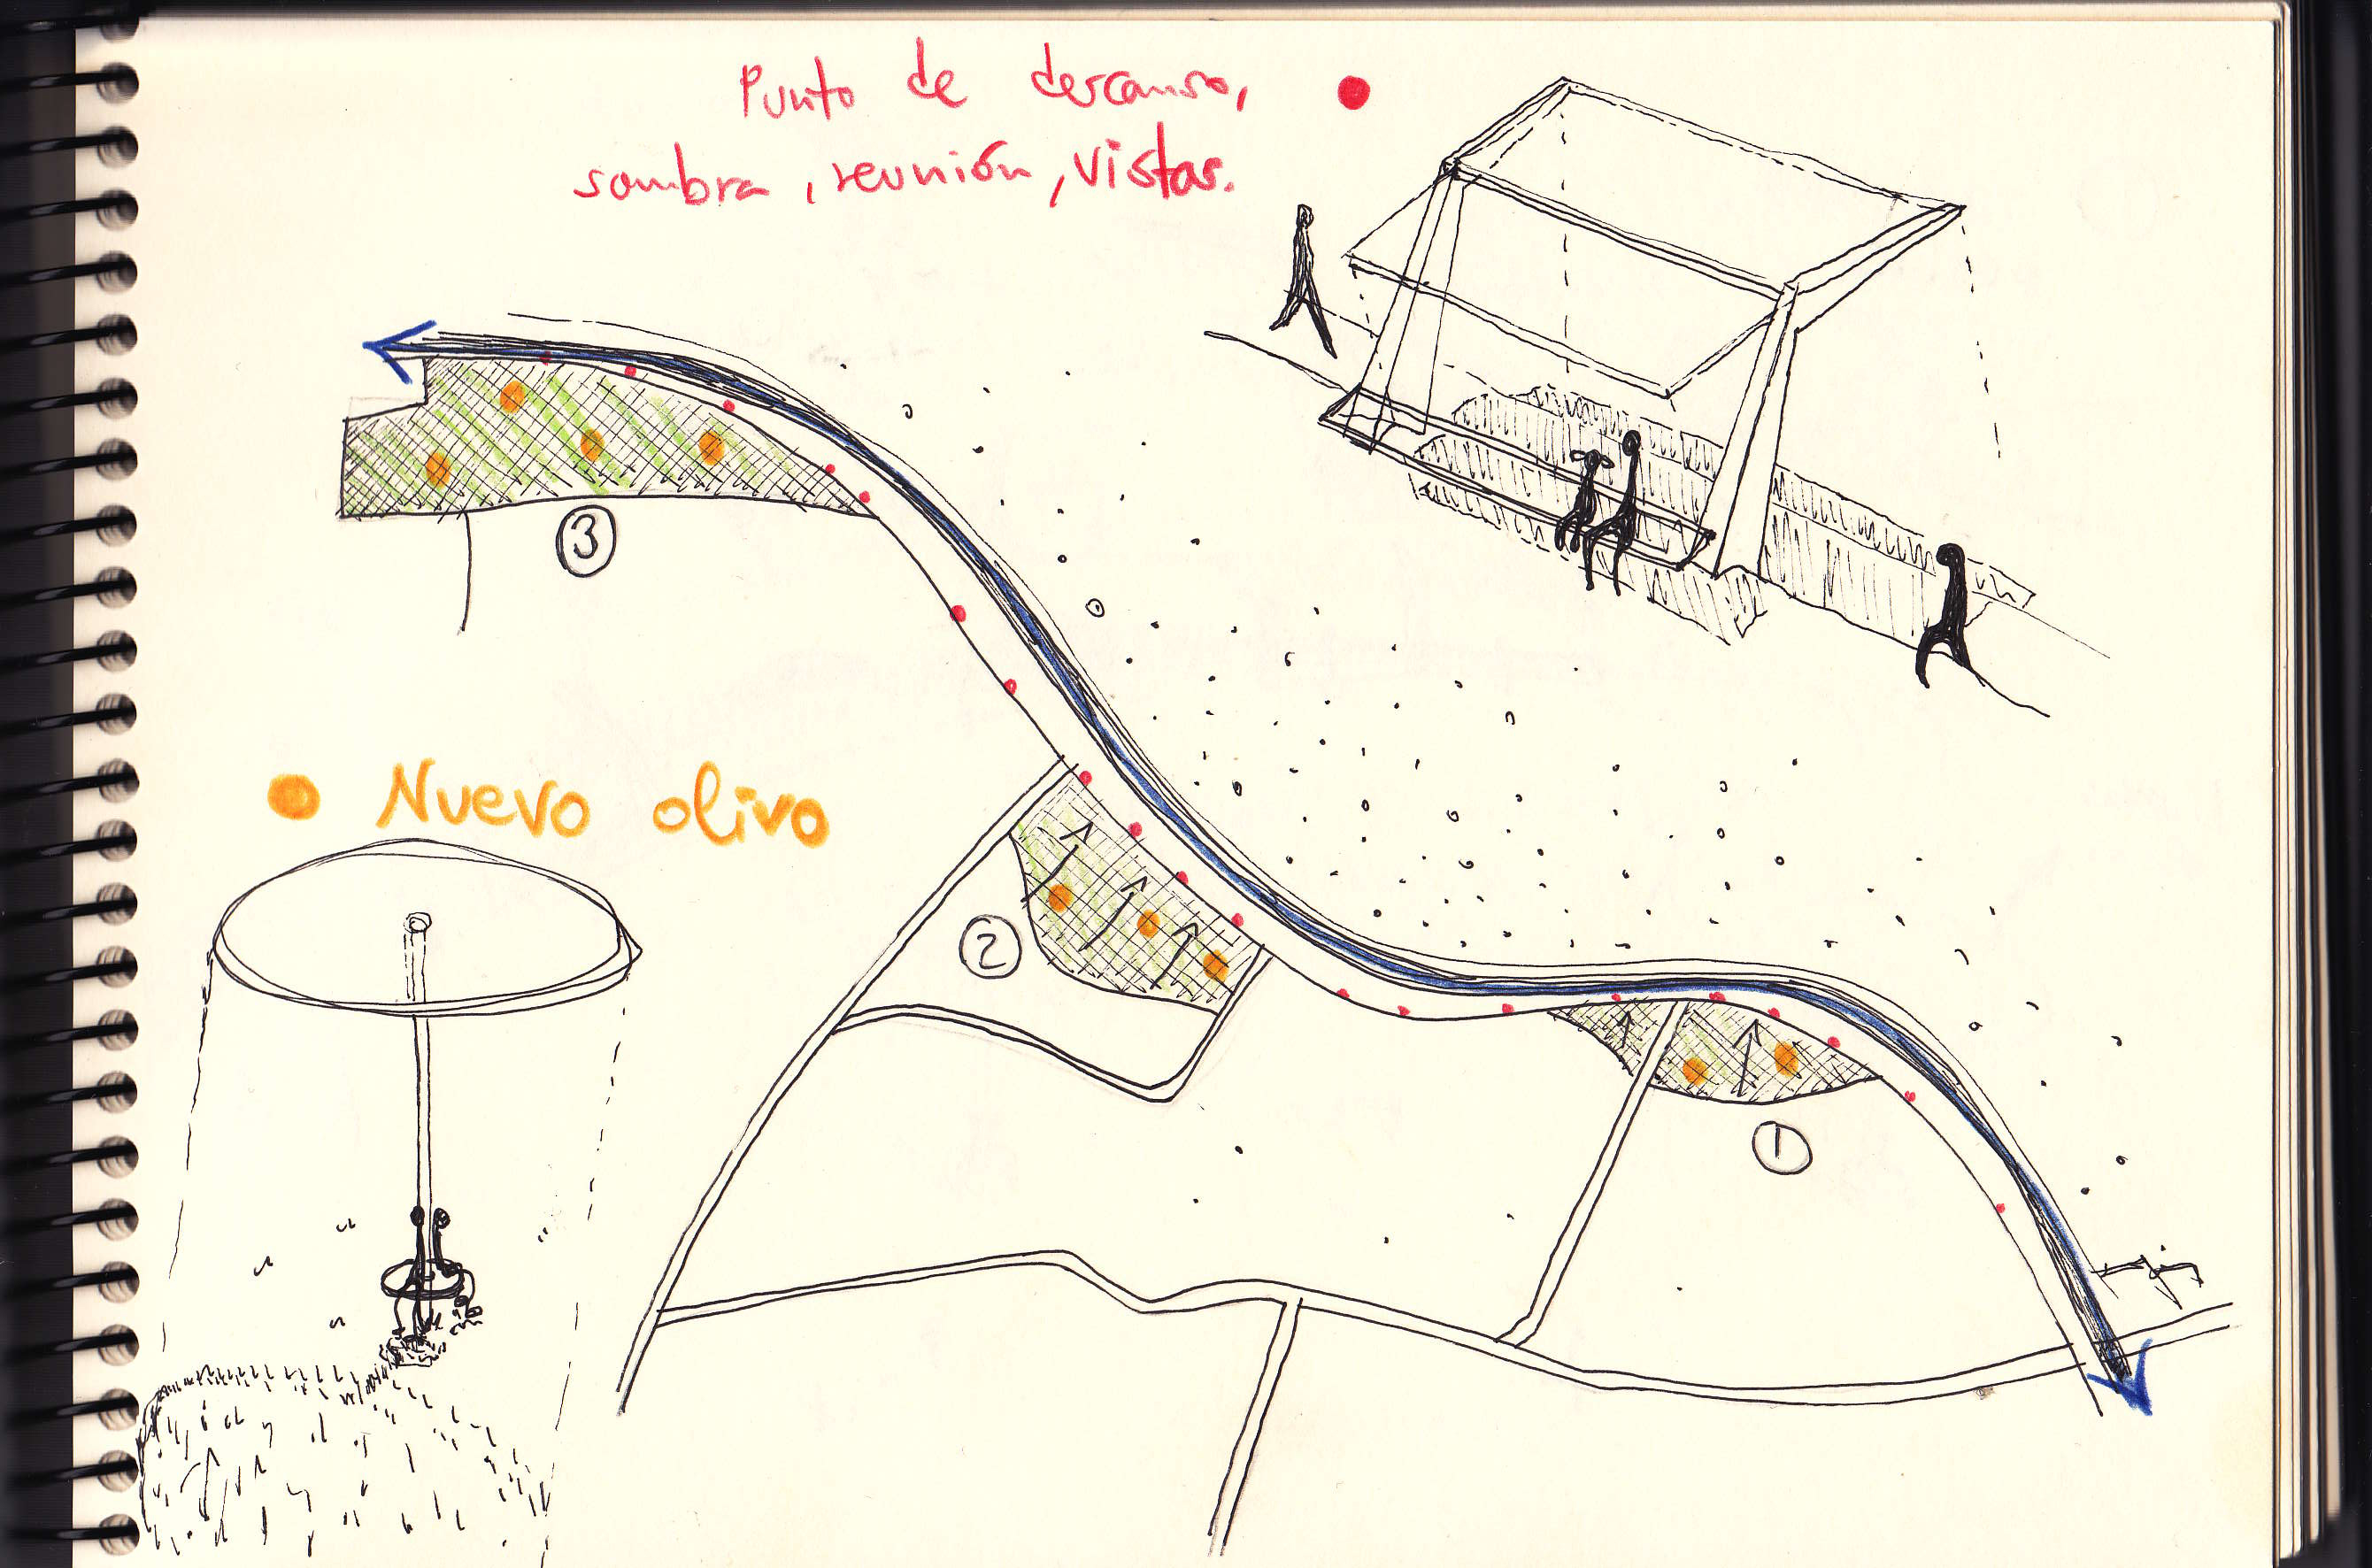 Punto de descanso,
sombra, reunión, vistas.
3
Nuevo olivo
2
1